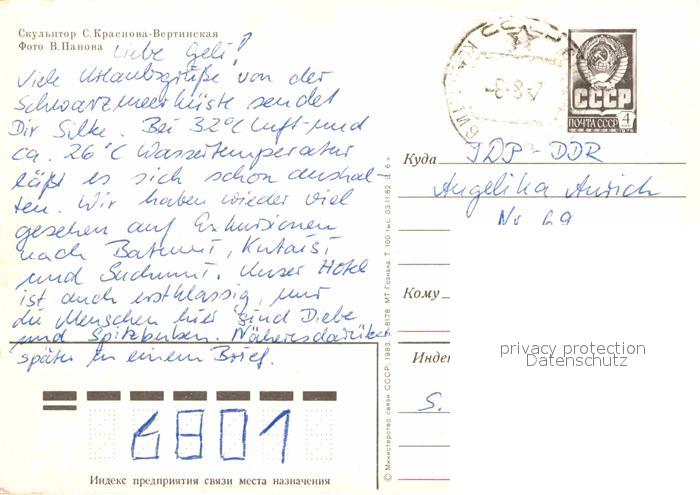 Скульптор С. Краснова-Вертинская
Фото В. Панова
Liebe Geli!
Viele Urlaubsgrüße von der
Schwarzmeerküste sendet
Dir Silke. Bei 32°C Luft- und
ca. 26°C Wassertemperatur
läßt es sich schon aushal-
ten. Wir haben wieder viel
gesehen auf Exkursionen
nach Batumi, Kutaisi
und Suchumi. Unser Hotel
ist auch erstklassig, nur
die Menschen hier sind Diebe
und Spitzbuben. Näheres darüber
später in einem Brief.
6801
Индекс предприятия связи места назначения
© Министерство связи СССР. 1983.
МТ Гознака. Т. 100 тыс. 03.11.82
СССР
ПОЧТА СССР 4
Куда
DDR
Angelika
Nr 29
Кому
Индек
S.
privacy protection
Datenschutz